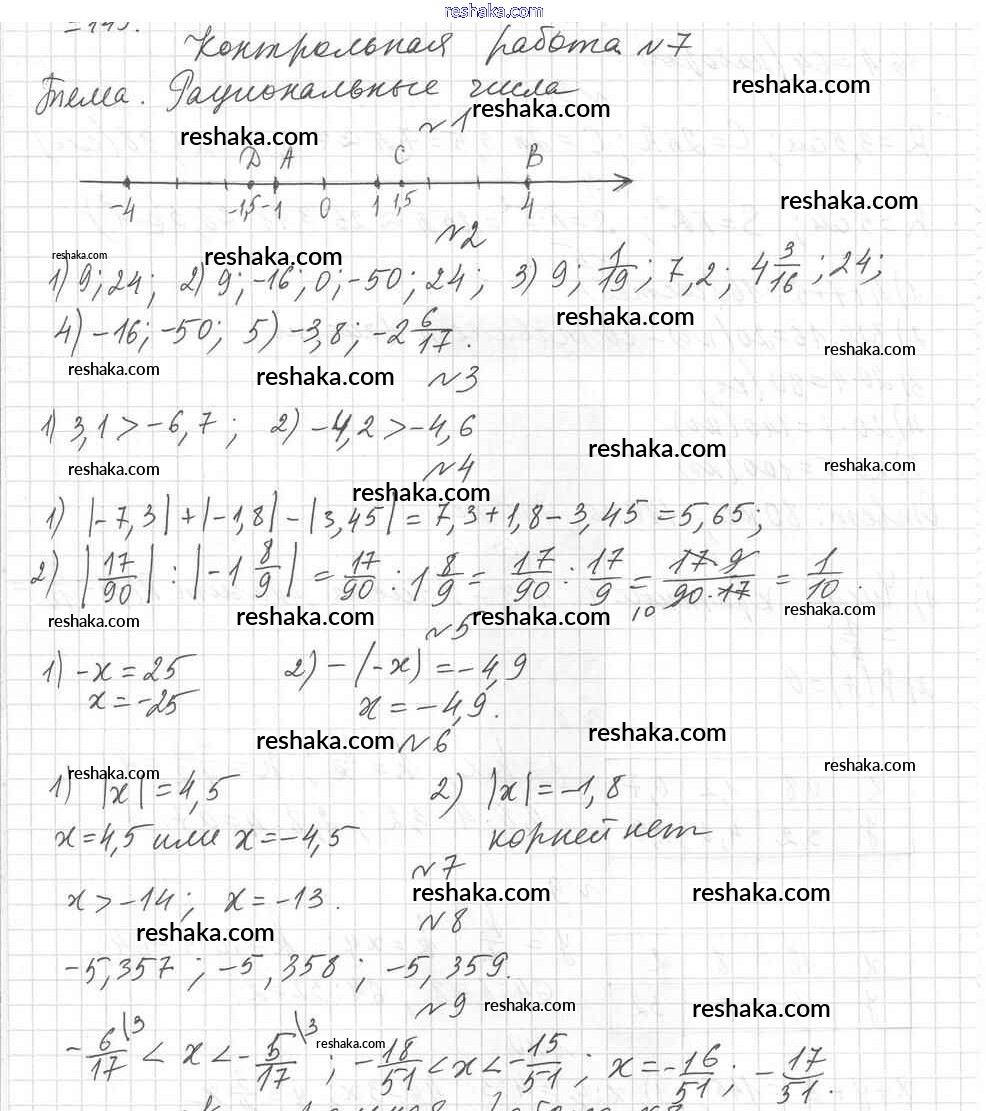 reshaka.com
=145.
Контрольная работа №7
reshaka.com
Тема. Рациональные числа
reshaka.com
reshaka.com
№1
D A C B
-4 -1,5 -1 0 1 1,5 4
reshaka.com
№2
reshaka.com reshaka.com
1) 9; 24; 2) 9; -16; 0; -50; 24; 3) 9; 1/19; 7,2; 4 3/16; 24;
reshaka.com
4) -16; -50; 5) -3,8; -2 6/17.
reshaka.com
reshaka.com reshaka.com
№3
1) 3,1 > -6,7; 2) -4,2 > -4,6
reshaka.com
reshaka.com reshaka.com
№4
reshaka.com
1) |-7,3| + |-1,8| - |3,45| = 7,3 + 1,8 - 3,45 = 5,65;
2) |17/90| : |-1 8/9| = 17/90 : 1 8/9 = 17/90 : 17/9 = 17·9/90·17 = 1/10.
10
reshaka.com reshaka.com reshaka.com reshaka.com
№5
1) -x = 25 2) -(-x) = -4,9
x = -25 x = -4,9.
reshaka.com reshaka.com
№6
reshaka.com reshaka.com
1) |x| = 4,5 2) |x| = -1,8
x = 4,5 или x = -4,5 корней нет
№7
x > -14; x = -13.
reshaka.com reshaka.com
№8
reshaka.com
-5,357; -5,358; -5,359.
№9
reshaka.com reshaka.com
-6/17 \3 < x < -5/17 \3; -18/51 < x < -15/51; x = -16/51; -17/51.
reshaka.com